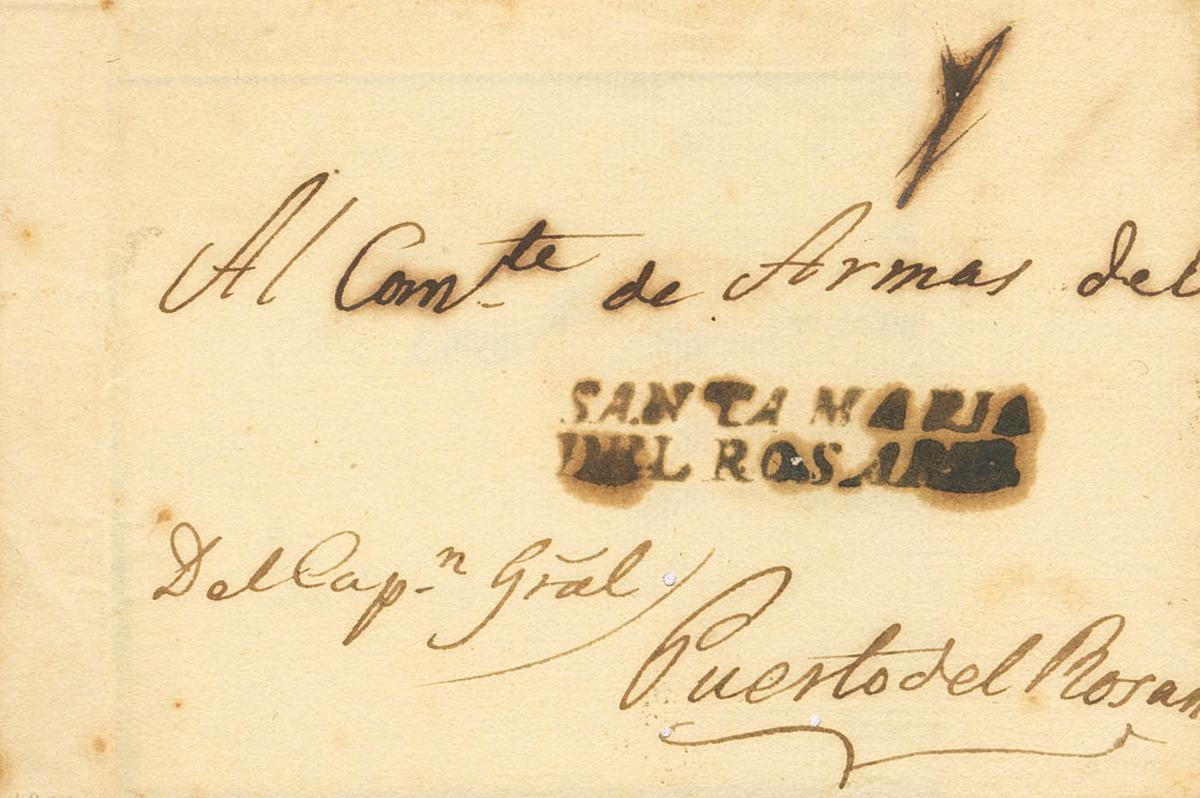 Al Com.te de Armas del
SANTA MARIA
DEL ROSARIO
Del Cap.n Grãl
Puerto del Rosar